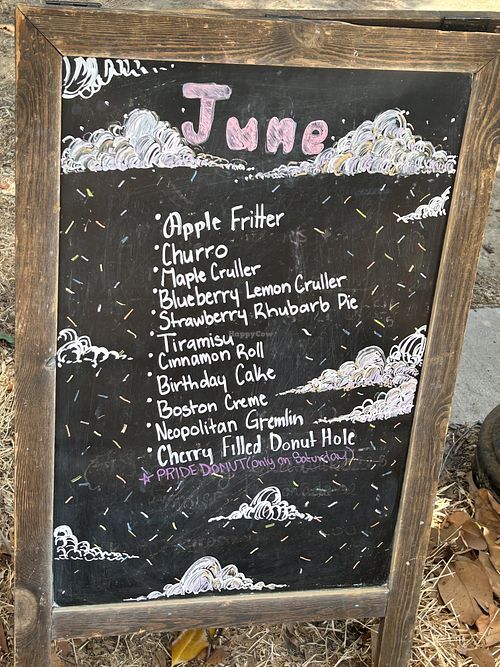 June
• Apple Fritter
• Churro
• Maple Cruller
• Blueberry Lemon Cruller
• Strawberry Rhubarb Pie
• Tiramisu
• Cinnamon Roll
• Birthday Cake
• Boston Creme
• Neopolitan Gremlin
• Cherry Filled Donut Hole
☆ PRIDE DONUT (only on Saturday)
HappyCow